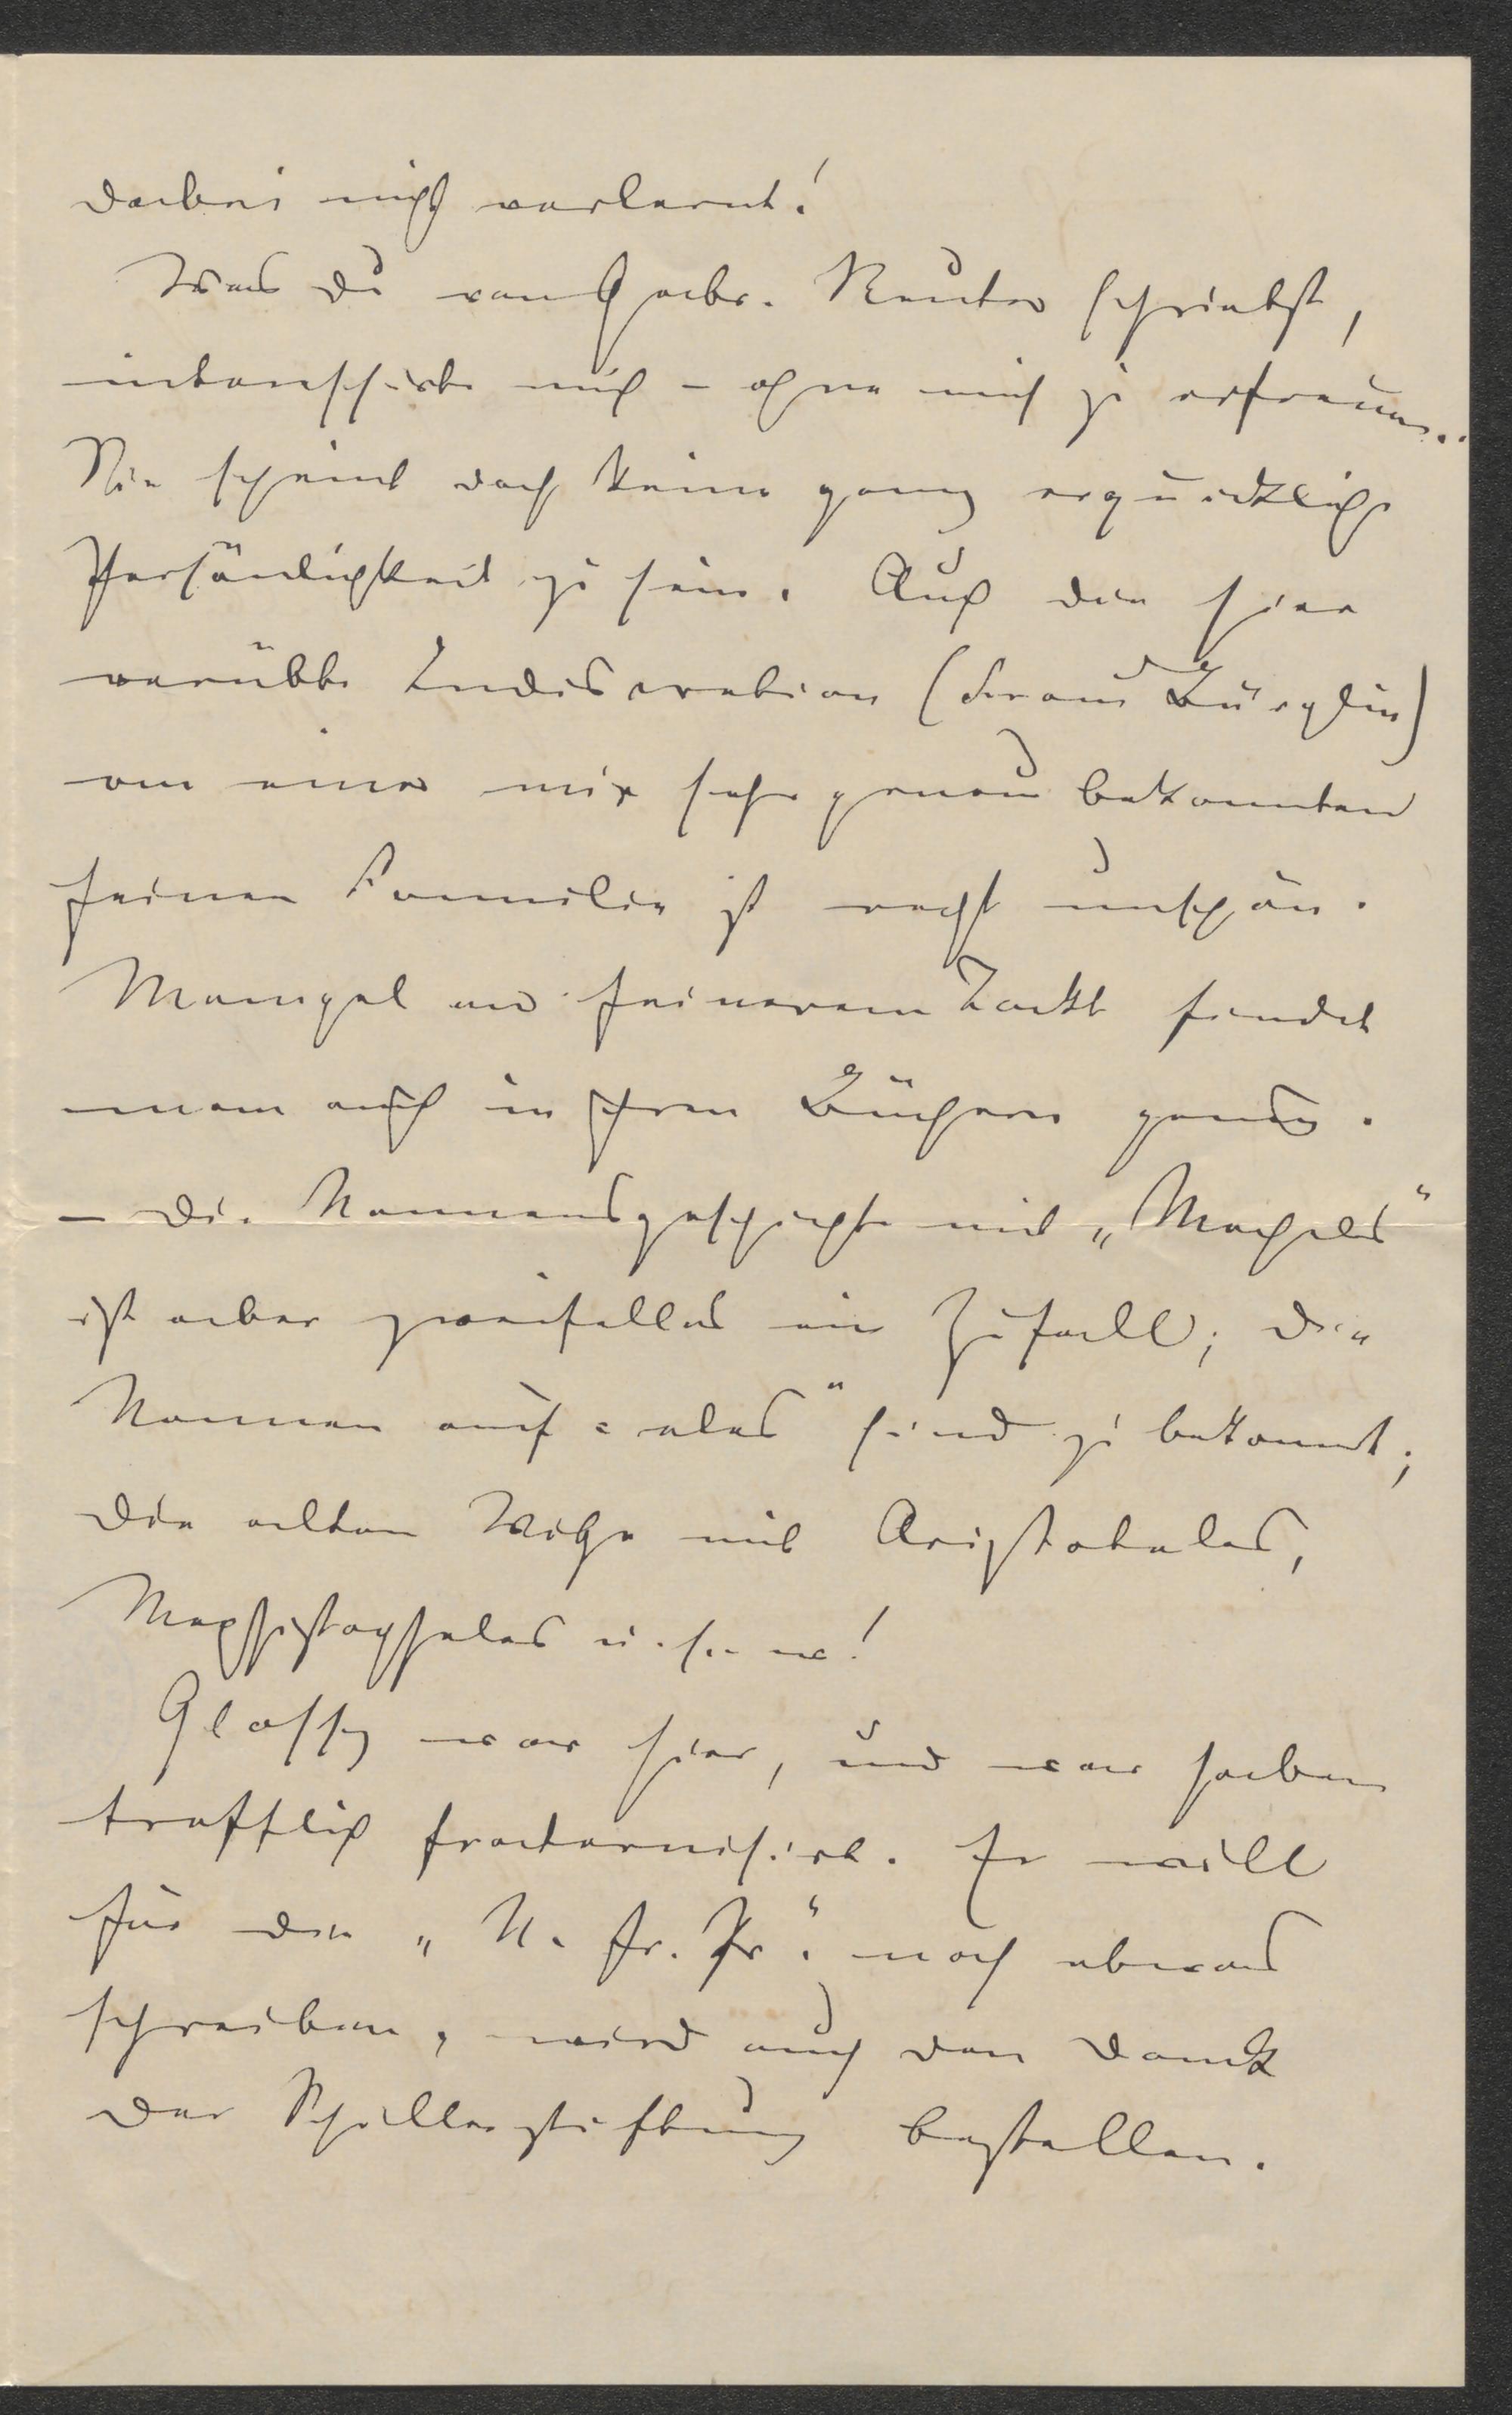 dabei nicht verlernt!
Was Du von Gabr. Reuter schriebst,
interessirte mich – ohne mich zu erfreuen..
Sie scheint doch keine ganz erquickliche
Persönlichkeit zu sein. Auch die hier
verübte Indiscretion (Frau Bürglin)
an einer mir sehr genau bekannten
feinen Familie ist recht unschön.
Mangel an feinerem Takt findet
man auch in ihren Büchern genug.
– Die Namensgeschichte mit „Macheles“
ist aber zweifellos ein Zufall; die
Namen auf „eles“ sind zu bekannt;
die alten Witze mit Aristoteles,
Mephistopheles u. s. w.!
Glossy war hier, und wir haben
trefflich fraternisirt. Er will
für die „N. Fr. Pr.“ noch etwas
schreiben, wird auch den Dank
der Schillerstiftung bestellen.